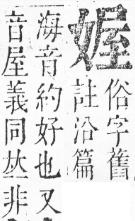 媉俗字舊
註沿篇
海音約好也又
音屋義同𠀤非